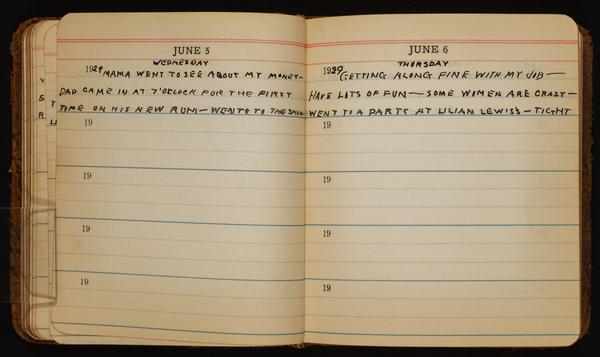 JUNE 5
WEDNESDAY
1929 MAMA WENT TO SEE ABOUT MY MONEY—
DAD CAME IN AT 7 O'CLOCK FOR THE FIRST
TIME ON HIS NEW RUN— WENT TO THE SHOW
19
19
19
19
JUNE 6
THURSDAY
1929 GETTING ALONG FINE WITH MY JOB—
HAVE LOTS OF FUN— SOME WOMEN ARE CRAZY—
WENT TO A PARTY AT LILIAN LEWIS'S— TIGHT
19
19
19
19